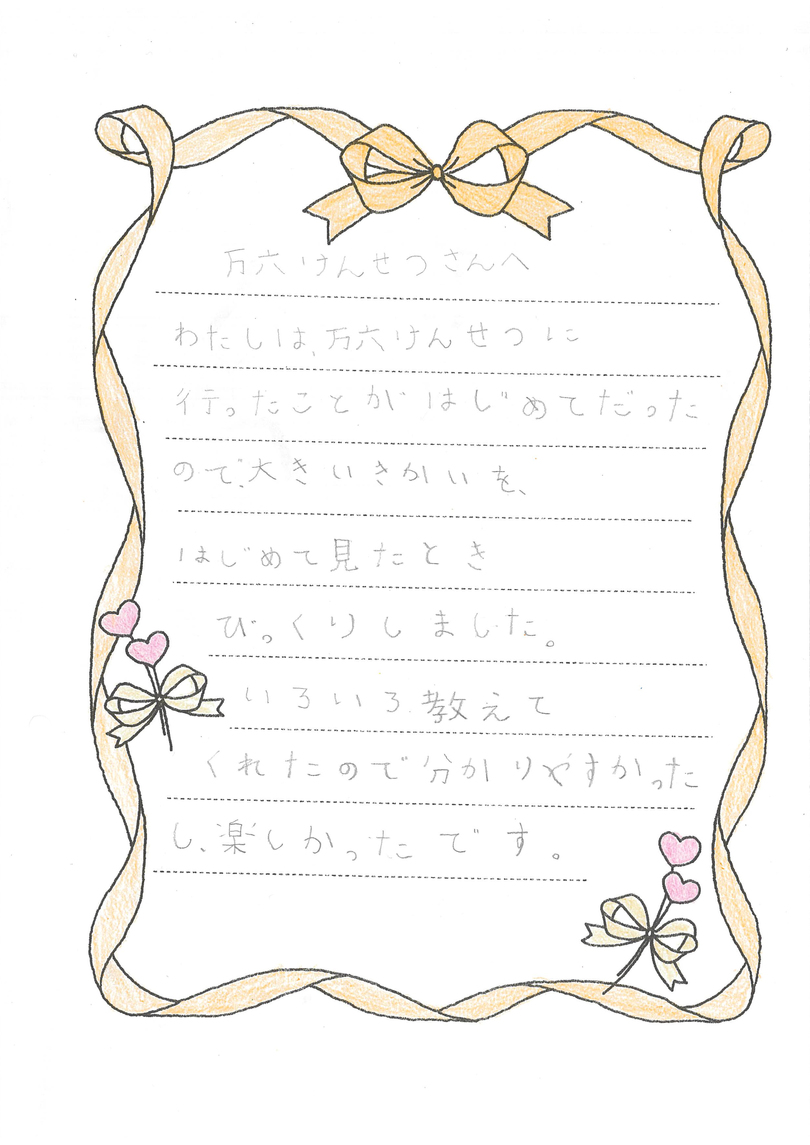 万六けんせつさんへ
わたしは、万六けんせつに
行ったことがはじめてだった
ので、大きいきかいを、
はじめて見たとき
びっくりしました。
いろいろ教えて
くれたので分かりやすかった
し、楽しかったです。